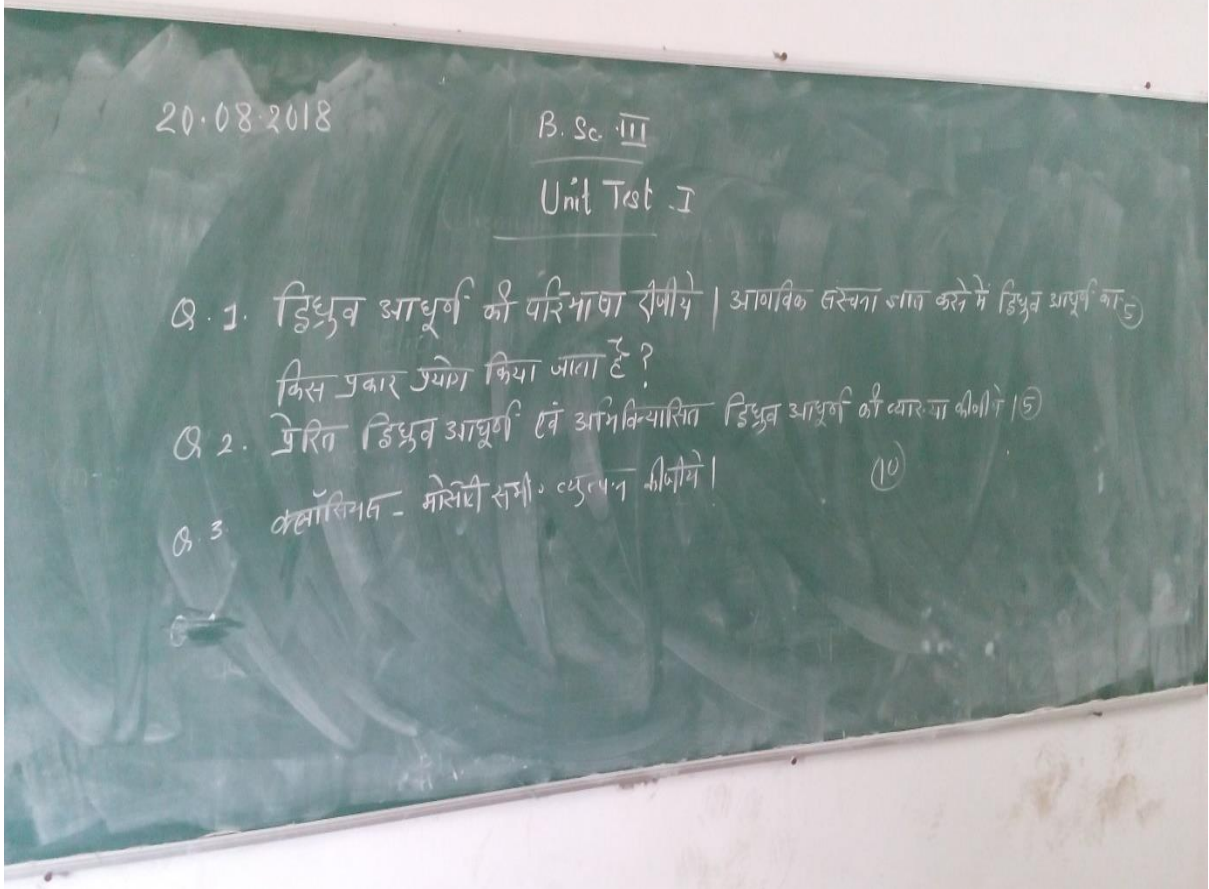 20.08.2018
B. Sc. III
Unit Test - I
Q. 1. द्विध्रुव आघूर्ण की परिभाषा दीजीये | आणविक संरचना ज्ञात करने में द्विध्रुव आघूर्ण का 5
किस प्रकार प्रयोग किया जाता है ?
Q 2. प्रेरित द्विध्रुव आघूर्ण एवं अभिविन्यासित द्विध्रुव आघूर्ण की व्याख्या कीजीये | 5
Q. 3 क्लॉसियस - मोसोटी समी॰ व्युत्पन्न कीजीये | 10